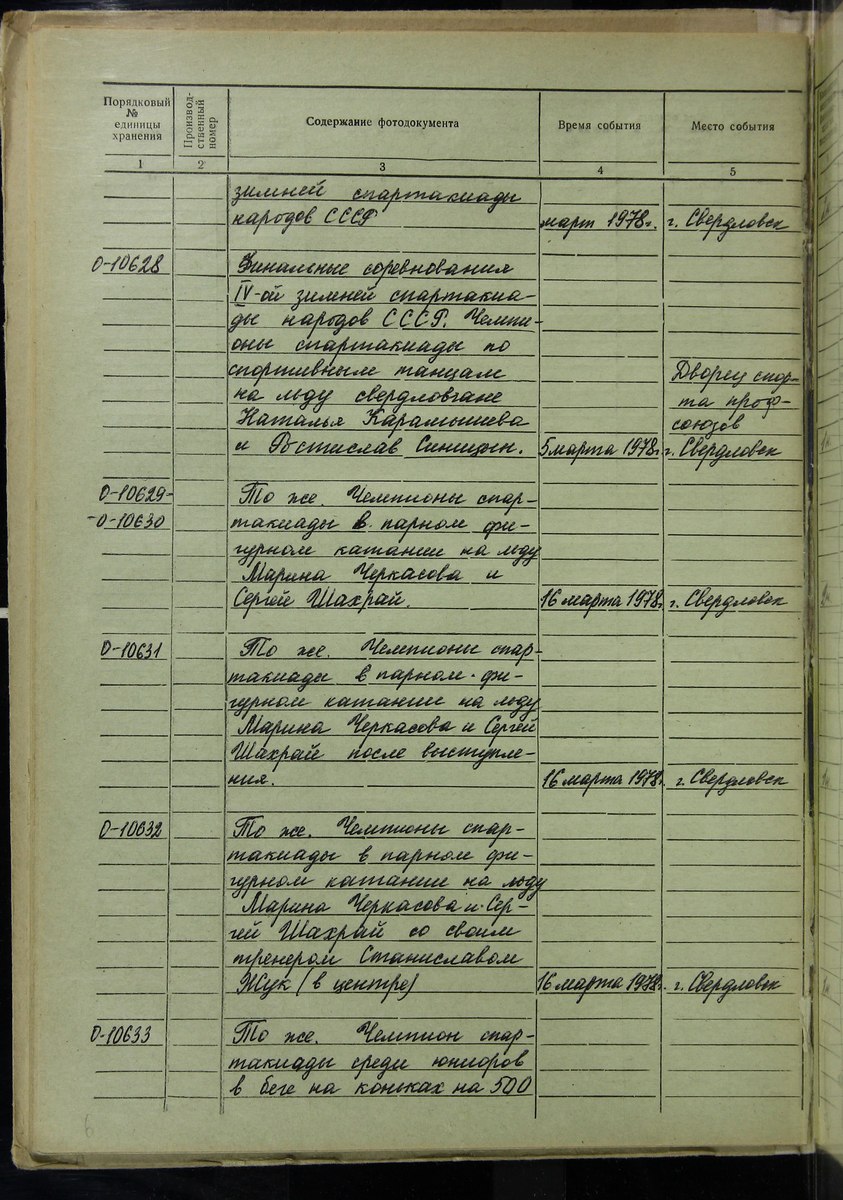 Порядковый № единицы хранения
Производ-ственный номер
Содержание фотодокумента
Время события
Место события
1 2 3 4 5
зимней спартакиады
народов СССР март 1978г. г. Свердловск
0-10628 Финальные соревнования
IV-ой зимней спартакиа-
ды народов СССР. Чемпи-
оны спартакиады по
спортивным танцам Дворец спор-
на льду свердловчане та проф-
Наталья Карамышева союзов
и Ростислав Синицын. 5 марта 1978г. г. Свердловск
0-10629- То же. Чемпионы спар-
-0-10630 такиады в парном фи-
гурном катании на льду
Марина Черкасова и
Сергей Шахрай. 16 марта 1978г. г. Свердловск
0-10631 То же. Чемпионы спар-
такиады в парном фи-
гурном катании на льду
Марина Черкасова и Сергей
Шахрай после выступле-
ния. 16 марта 1978г. г. Свердловск
0-10632 То же. Чемпионы спар-
такиады в парном фи-
гурном катании на льду
Марина Черкасова и Сер-
гей Шахрай со своим
тренером Станиславом
Жук (в центре) 16 марта 1978г. г. Свердловск
0-10633 То же. Чемпион спар-
такиады среди юниоров
в беге на коньках на 500
6